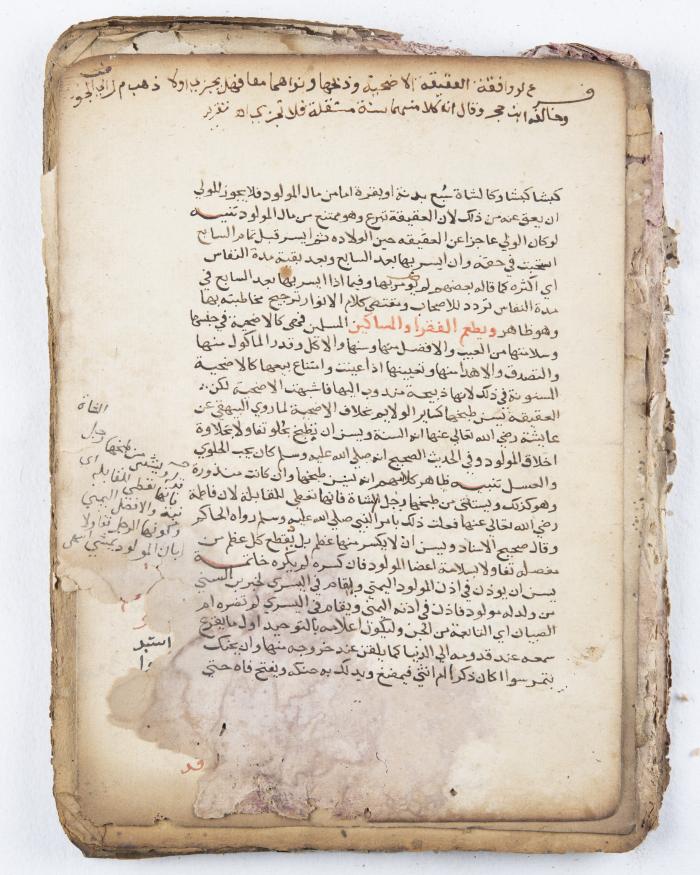 فرع لو وافقة العقيقة الاضحية وذبحها ونواهما معا فهل يجزي اولا ذهب م ر الي
وخالفه ابن حجر وقال ان كلا منهما سنة مستقلة فلا تجزي اه تقرير
كبشا كبشا وكالشاة سبع بدنة او بقرة اما من مال المولود فلا يجوز للولي
ان يعق عنه من ذلك لان العقيقة تبرع وهو ممتنع من مال المولود تنبيه
لو كان الولي عاجزا عن العقيقه حين الولاده ثم ايسر قبل تمام السابع
استحبت في حقه وان ايسر بها بعد السابع وبعد بقية مدة النفاس
اي اكثره كما قاله بعضهم لم يومر بها وفيما اذا ايسر بها بعد السابع في
مدة النفاس تردد للاصحاب ومقتضي كلام الانوار ترجيح مخاطبته بها
وهو ظاهر ويطعم الفقرا والمساكين المسلمين فهي كالاضحية في جنسها
وسلامتها من العيب والافضل منها وسنها والاكل وقدر الماكول منها
والتصدق والاهدا منها وتعيينها اذا عينت وامتناع بيعها كالاضحية
المسنونة في ذلك لانها ذبيحة مندوب اليها فاشبهت الاضحية لكن
العقيقة يسن طبخها كساير الولايم بخلاف الاضحية لما روي البيهقي عن
عايشة رضي الله تعالي عنها انه السنة ويسن ان تطبخ بحلو تفاولا بحلاوة
اخلاق المولود وفي الحديث الصحيح انه صلي الله عليه وسلم كان يحب الحلوي
والعسل تنبيه ظاهر كلامهم انه يسن طبخها وان كانت منذورة
وهو كذلك ويستثني من طبخها رجل الشاة فانها تعطي للقابلة لان فاطمة
رضي الله تعالي عنها فعلت ذلك بامر النبي صلي الله عليه وسلم رواه الحاكم
وقال صحيح الاسناد ويسن ان لا يكسر منها عظم بل يقطع كل عظم من
مفصله تفاولا بسلامة اعضا المولود فان كسره لم يكره خاتمة
يسن ان يوذن في اذن المولود اليمني ويقام في اليسري لخبر ابن السني
من ولد له مولود فاذن في اذنه اليمني ويقام في اليسري لم تضره ام
الصبيان اي التابعة من الجن وليكون اعلامه بالتوحيد اول ما يقرع
سمعه عند قدومه الي الدنيا كما يلقن عند خروجه منها وان يحنك
بتمر سوا اكان ذكرا ام انثي فيمضغ ويدلك به حنكه ويفتح فاه حتي
الشاة
رجل
ويستثني من طبخها
فانها تعطي للقابلة اي
نية والافضل اليمني
وكونها الرجل تفاولا
بان المولود يمشي انتهي
استبد
وا
قد